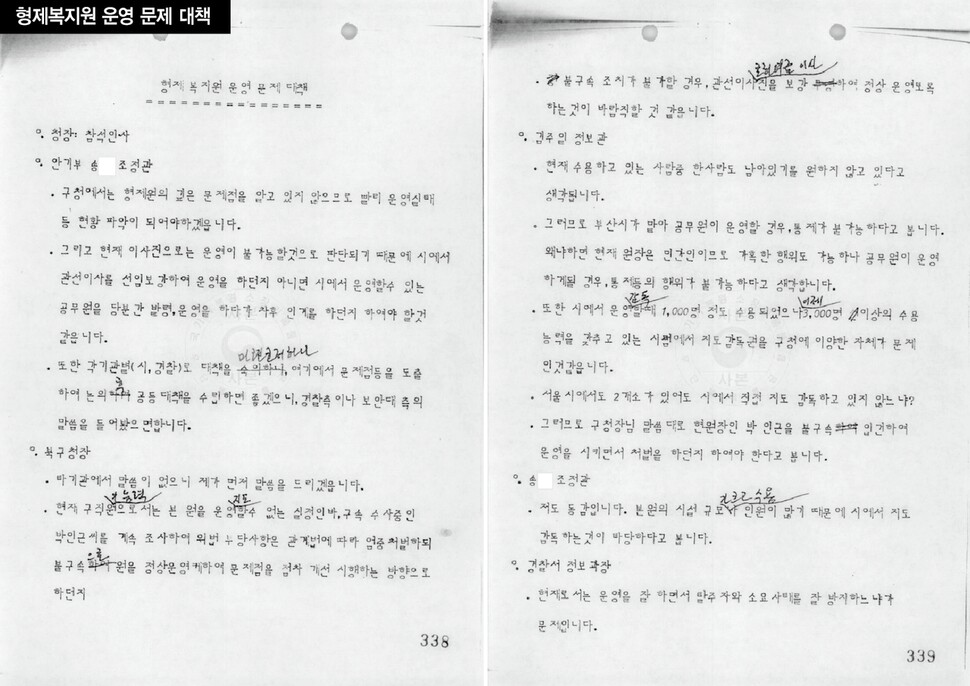 형제복지원 운영 문제 대책
형제복지원 운영 문제 대책
================
°. 청장: 참석인사
°. 안기부 송 조정관
. 구청에서는 형제원의 깊은 문제점을 알고 있지 않으므로 빨리 운영실태
등 현황 파악이 되어야하겠읍니다.
. 그리고 현재 이사진으로는 운영이 불가능할것으로 판단되기 때문에 시에서
관선이사를 선임보강하여 운영을 하던지 아니면 시에서 운영할수 있는
공무원을 당분간 발령,운영을 하다가 차후 인계를 하던지 하여야 할것
같읍니다.
. 또한 각기관별(시,경찰)로 대책을 숙의하니, 여기에서 문제점등을 도출
하여 논의 공동대책을 수립하면 좋겠으니,경찰측이나 보안대 측의
말씀을 들어봤으면합니다.
°. 북구청장
. 타기관에서 말씀이 없으니 제가 먼저 말씀을 드리겠읍니다.
능력 지도
. 현재 구직원으로서는 본 원을 운영할수 없는 실정인바,구속 수사중인
박인근씨를 계속 조사하여 위법 부당사항은 관계법에 따라 엄중처벌하되
으로
불구속 원을 정상운영케하여 문제점을 점차 개선 시행하는 방향으로
하던지
338
이사
. 불구속 조치가 불가할 경우, 관선이사진을 보강 하여 정상 운영토록
하는것이 바람직할 것 같읍니다.
°. 김주임 정보관
. 현재 수용하고 있는 사람중 한사람도 남아있기를 원하지 않고 있다고
생각됩니다.
. 그러므로 부산시가 맡아 공무원이 운영할 경우,통제가 불가능하다고 봅니다.
왜냐하면 현재 원장은 민간인이므로 가혹한 행위도 가능하나 공무원이 운영
하게될 경우,통제등의 행위가 불가능하다고 생각합니다.
감독 이제
. 또한 시에서 운영할때 1,000명 정도 수용되었으나 3,000명 이상의 수용
능력을 갖추고 있는 시점에서 지도감독권을 구청에 이양한 자체가 문제
인것같읍니다.
. 서울시에서도 2개소가 있어도 시에서 직접 지도 감독하고 있지 않느냐?
. 그러므로 구청장님 말씀 대로 현원장인 박 인근을 불구속 입건하여
운영을 시키면서 처벌을 하던지 하여야 한다고 봅니다.
°. 송 조정관
크고 수용
. 저도 동감입니다. 본원의 시설 규모가 인원이 많기 때문에 시에서 지도
감독하는것이 마땅하다고 봅니다.
°. 경찰서 정보과장
. 현재로서는 운영을 잘 하면서 탈주자와 소요사태를 잘 방지하느냐가
문제입니다.
339
사본
사본